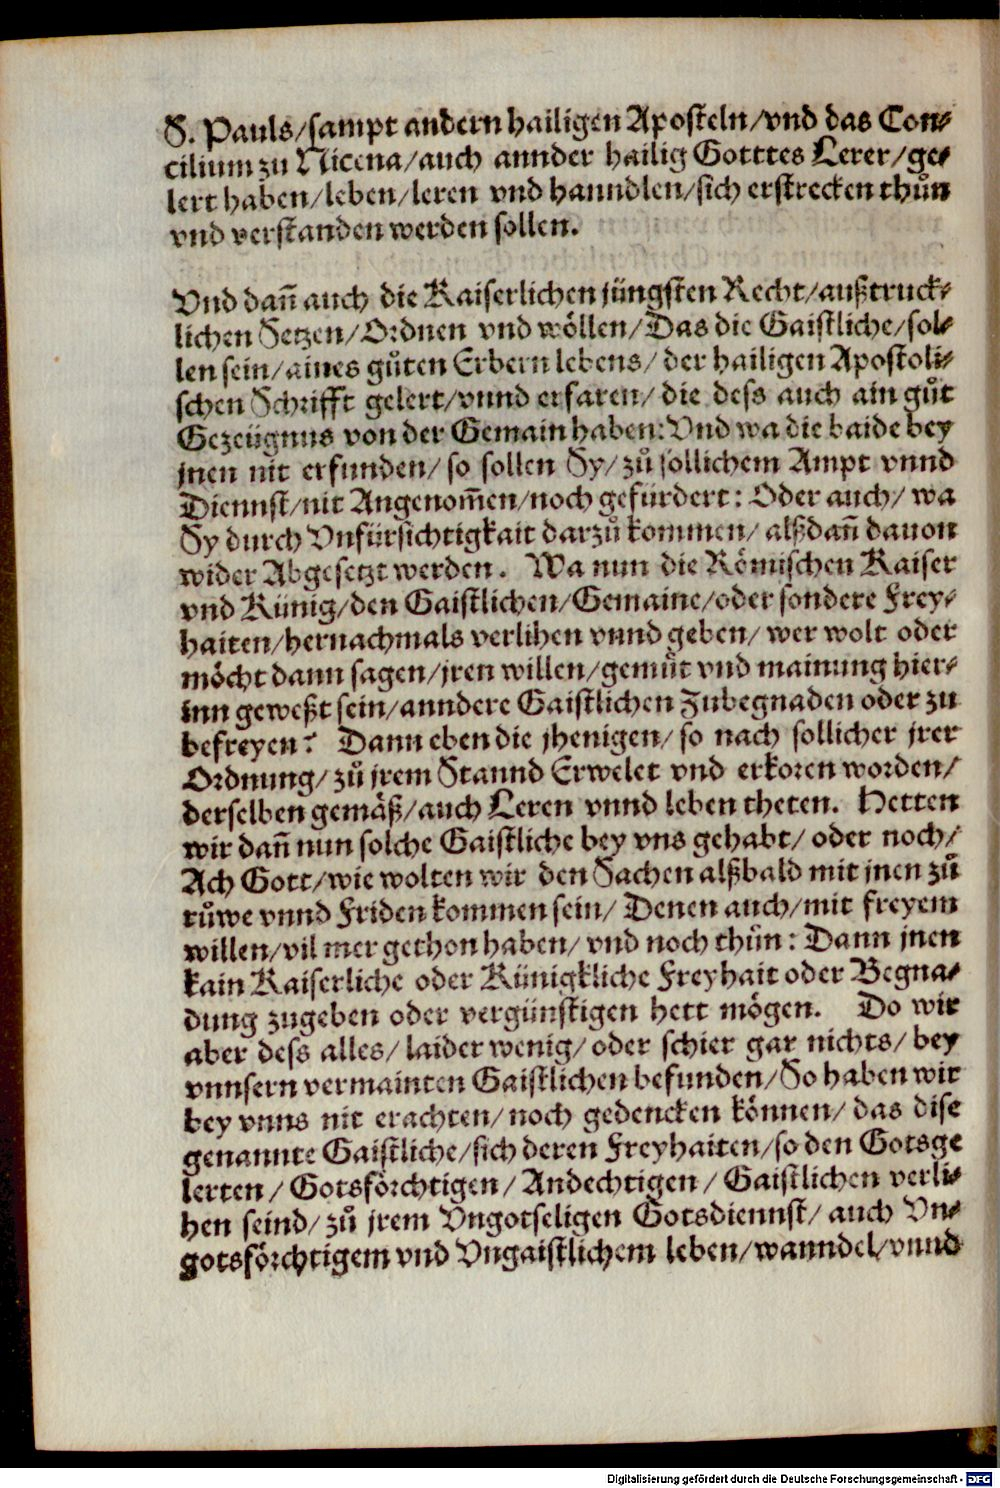 S. Pauls/sampt andern hailigen Aposteln/vnd das Con⸗
cilium zu Nicena/auch annder hailig Gotttes Lerer/ge⸗
lert haben/leben/leren vnd hanndlen/sich erstrecken thůn
vnd verstanden werden sollen.
Vnd dañ auch die Kaiserlichen jüngsten Recht/außtruck⸗
lichen Setzen/Ordnen vnd wöllen/Das die Gaistliche/sol⸗
len sein/aines gůten Erbern lebens/der hailigen Apostoli⸗
schen Schrifft gelert/vnnd erfaren/die dess auch ain gůt
Gezeügnus von der Gemain haben:Vnd wa die baide bey
jnen nit erfunden/so sollen Sy/zů sollichem Ampt vnnd
Diennst/nit Angenom̃en/noch gefürdert: Oder auch/wa
Sy durch Vnfürsichtigkait darzů kommen/alßdañ dauon
wider Abgesetzt werden. Wa nun die Römischen Kaiser
vnd Künig/den Gaistlichen/Gemaine/oder sondere Frey⸗
haiten/hernachmals verlihen vnnd geben/wer wolt oder
möcht dann sagen/jren willen/gemüt vnd mainung hier⸗
inn geweßt sein/anndere Gaistlichen Zubegnaden oder zu
befreyen? Dann eben die jhenigen/so nach sollicher jrer
Ordnung/zů jrem Stannd Erwelet vnd erkoren worden/
derselben gemäß/auch Leren vnnd leben theten. Hetten
wir dañ nun solche Gaistliche bey vns gehabt/oder noch/
Ach Gott/wie wolten wir den Sachen alßbald mit jnen zů
růwe vnnd Friden kommen sein/Denen auch/mit freyem
willen/vil mer gethon haben/vnd noch thůn: Dann jnen
kain Kaiserliche oder Künigkliche Freyhait oder Begna⸗
dung zugeben oder vergünstigen hett mögen. Do wir
aber dess alles/laider wenig/oder schier gar nichts/bey
vnnsern vermainten Gaistlichen befunden/So haben wir
bey vnns nit erachten/noch gedencken können/das dise
genannte Gaistliche/sich deren Freyhaiten/so den Gotsge
lerten/Gotsförchtigen/Andechtigen/Gaistlichen verli⸗
hen seind/zů jrem Vngotseligen Gotsdiennst/auch Vn⸗
gotsförchtigem vnd Vngaistlichem leben/wanndel/vnnd
Digitalisierung gefördert durch die Deutsche Forschungsgemeinschaft - DFG